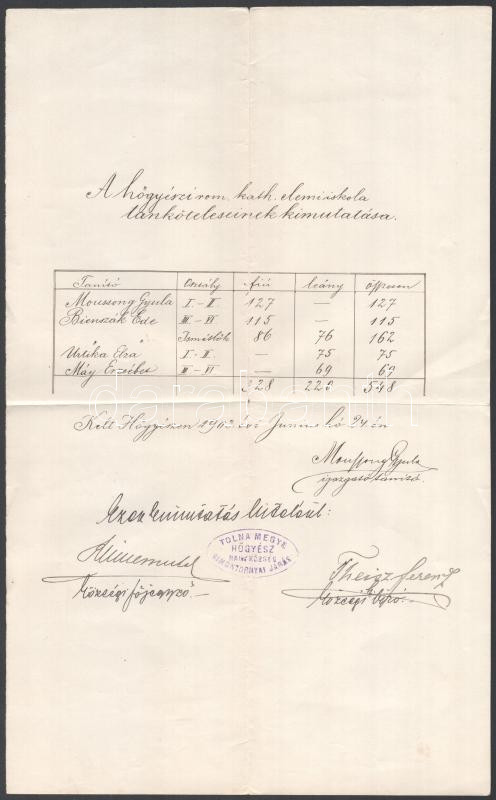 A hőgyészi rom. kath. elemi iskola
tanköteleseinek kimutatása.
Tanító Osztály fiú leány összesen
Moussong Gyula I.-II. 127 — 127
Bienszák Ede III.-VI. 115 — 115
Ismétlők 86 76 162
Urtika Elza I-II. — 75 75
Máy Erzsébet III-VI — 69 69
328 220 548
Kelt Hőgyészen 190 évi Junius hó 24 én
Moussong Gyula
igazgató tanító.
Ezen kimutatás hiteléül:
TOLNA MEGYE
HŐGYÉSZ
NAGYKÖZSÉG
SIMONTORNYAI JÁRÁS
Községi főjegyző
Theisz Ferencz
Községi biró.
darabanth